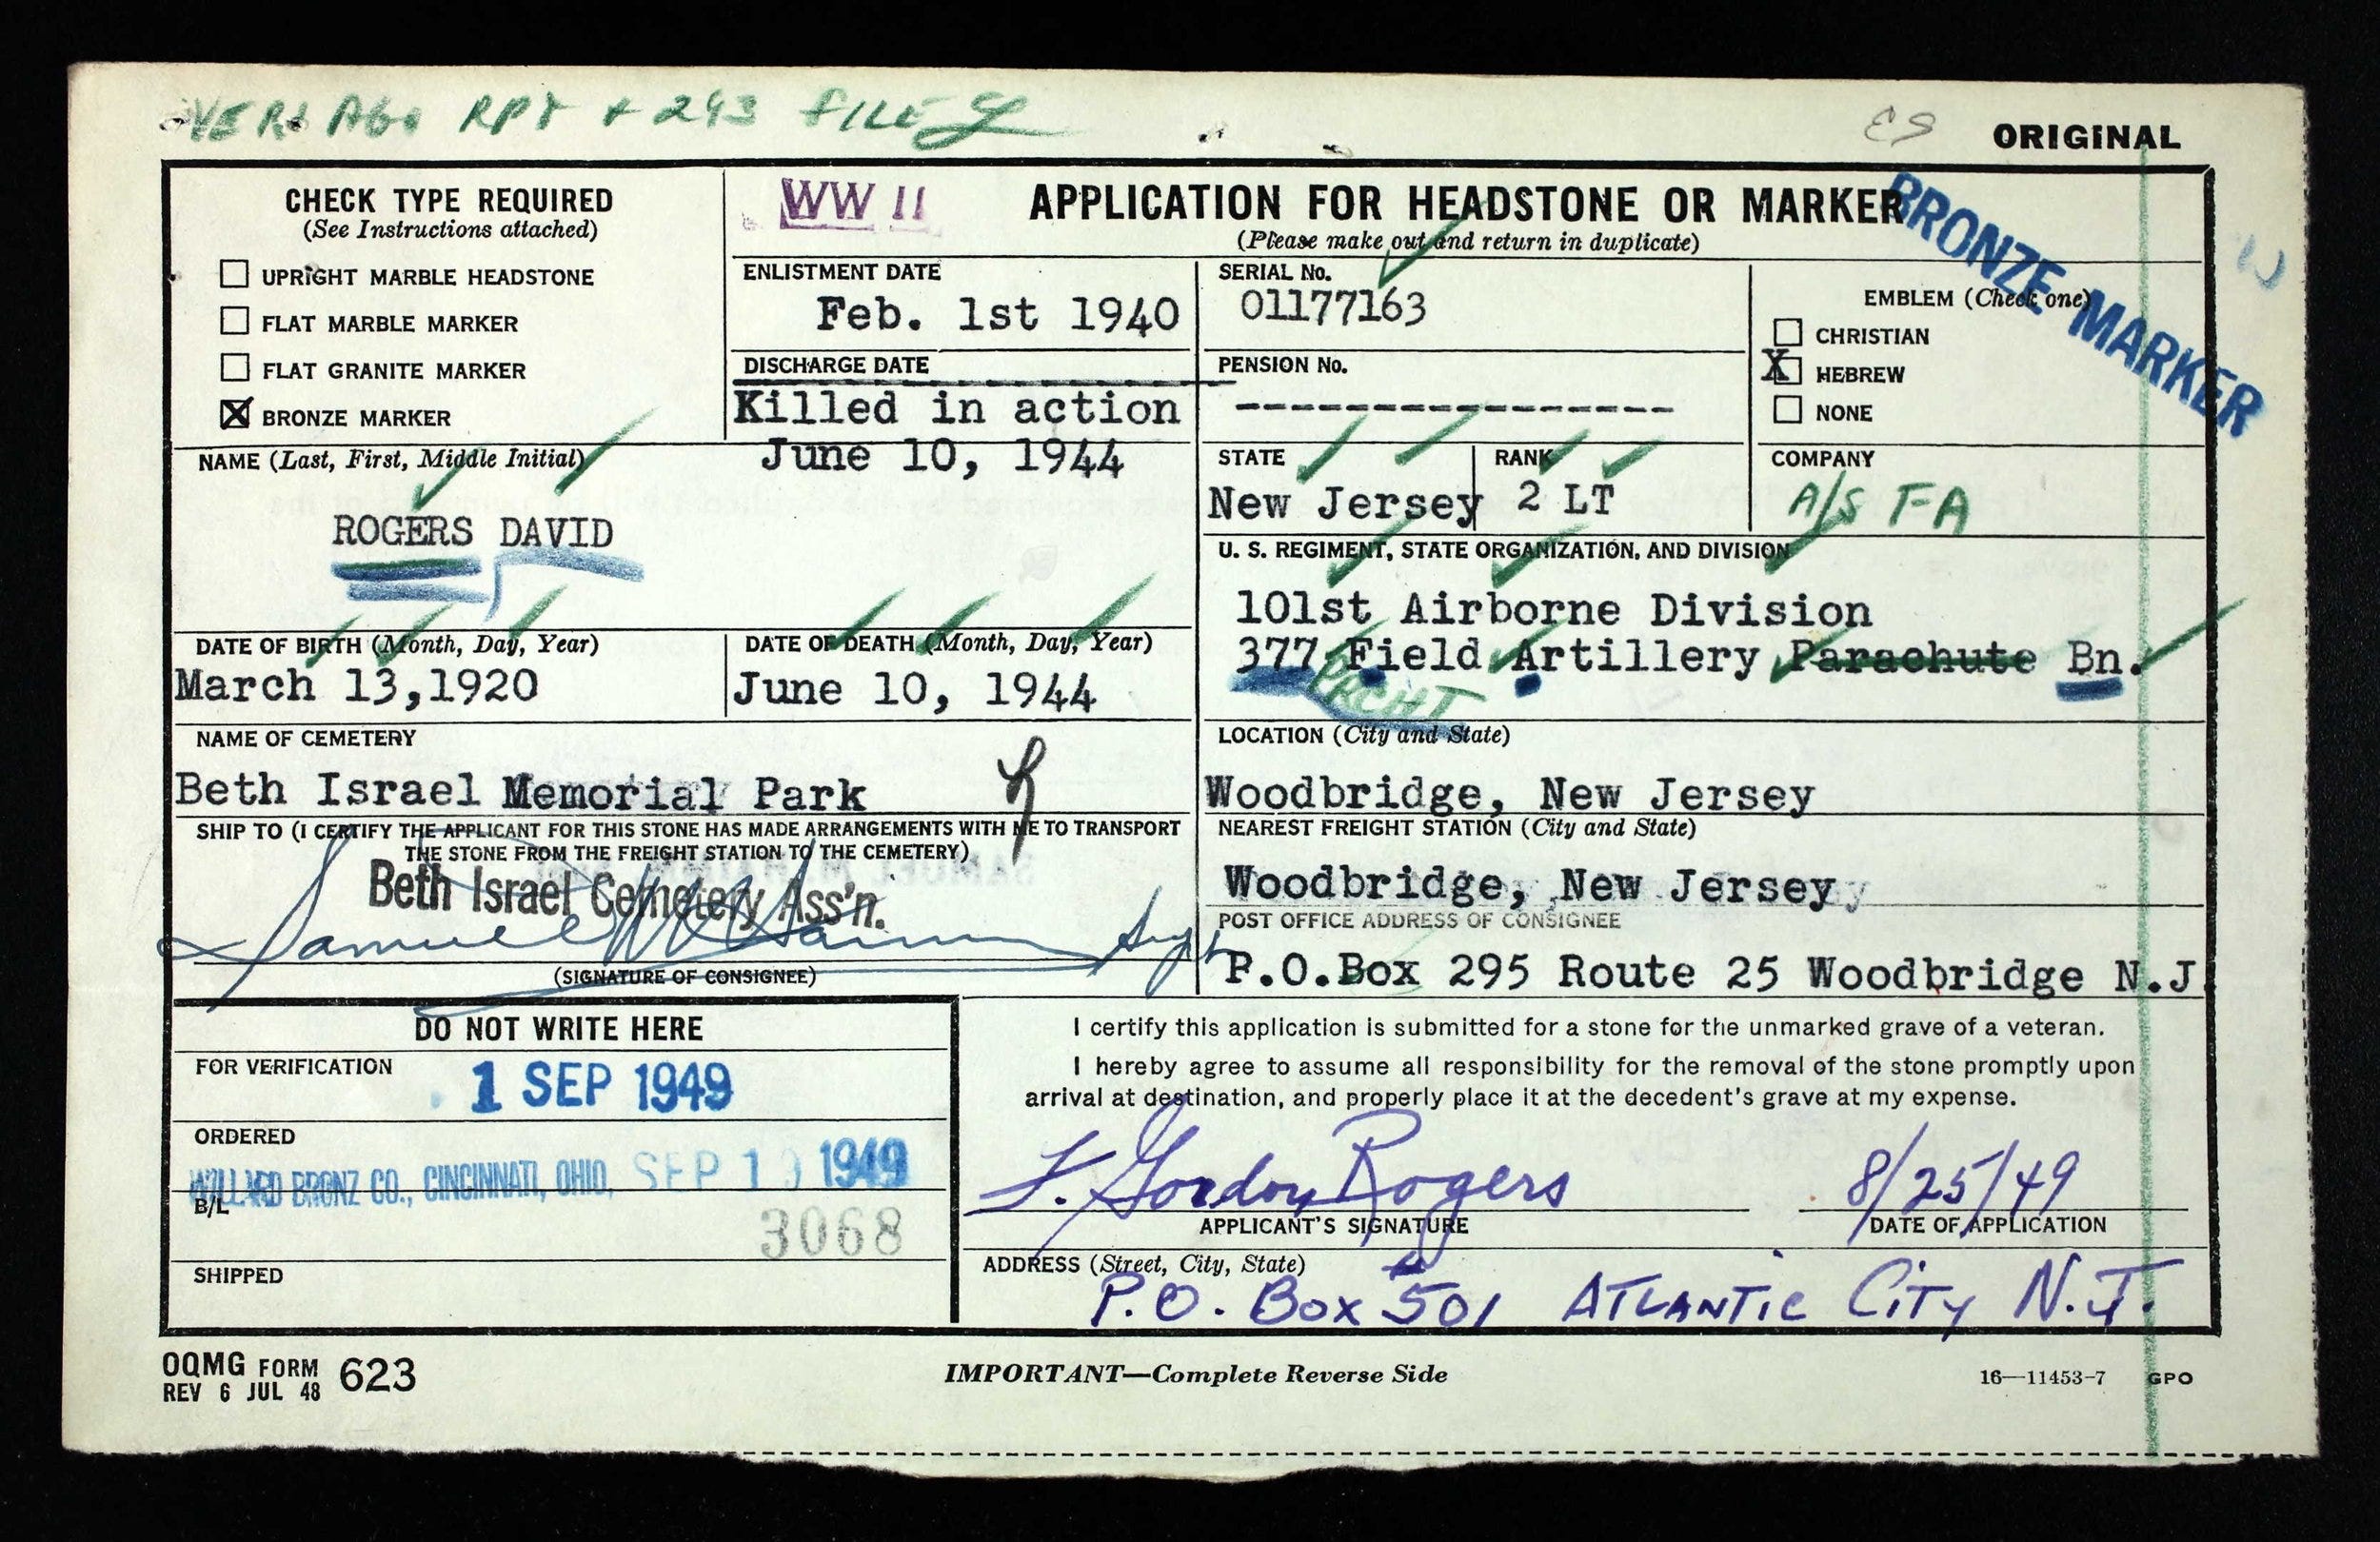 RPT + 293 FILE
ES
ORIGINAL
CHECK TYPE REQUIRED
(See Instructions attached)
UPRIGHT MARBLE HEADSTONE
FLAT MARBLE MARKER
FLAT GRANITE MARKER
X BRONZE MARKER
WW II
APPLICATION FOR HEADSTONE OR MARKER
(Please make out and return in duplicate)
BRONZE MARKER
ENLISTMENT DATE
Feb. 1st 1940
DISCHARGE DATE
Killed in action
June 10, 1944
SERIAL No.
01177163
PENSION No.
-----------------
EMBLEM (Check one)
CHRISTIAN
X HEBREW
NONE
NAME (Last, First, Middle Initial)
ROGERS DAVID
STATE
New Jersey
RANK
2 LT
COMPANY
A/S FA
U. S. REGIMENT, STATE ORGANIZATION, AND DIVISION
101st Airborne Division
377 Field Artillery Parachute Bn.
PRCHT
DATE OF BIRTH (Month, Day, Year)
March 13,1920
DATE OF DEATH (Month, Day, Year)
June 10, 1944
NAME OF CEMETERY
Beth Israel Memorial Park
LOCATION (City and State)
Woodbridge, New Jersey
SHIP TO (I CERTIFY THE APPLICANT FOR THIS STONE HAS MADE ARRANGEMENTS WITH ME TO TRANSPORT
THE STONE FROM THE FREIGHT STATION TO THE CEMETERY)
Beth Israel Cemetery Ass'n.
Samuel
Supt
(SIGNATURE OF CONSIGNEE)
NEAREST FREIGHT STATION (City and State)
Woodbridge, New Jersey
POST OFFICE ADDRESS OF CONSIGNEE
P.O.Box 295 Route 25 Woodbridge N.J.
DO NOT WRITE HERE
FOR VERIFICATION
1 SEP 1949
ORDERED
WILLARD BRONZ CO., CINCINNATI, OHIO, SEP 1 1949
B/L
3068
SHIPPED
I certify this application is submitted for a stone for the unmarked grave of a veteran.
I hereby agree to assume all responsibility for the removal of the stone promptly upon
arrival at destination, and properly place it at the decedent's grave at my expense.
F. Gordon Rogers
8/25/49
APPLICANT'S SIGNATURE
DATE OF APPLICATION
ADDRESS (Street, City, State)
P.O. Box #501 ATLANTIC CITY N.J.
OQMG FORM 623
REV 6 JUL 48
IMPORTANT—Complete Reverse Side
16—11453-7 GPO